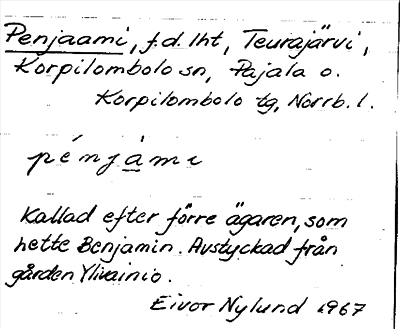 Penjaami, f.d. lht, Teurajärvi,
Korpilombolo sn, Pajala o.
Korpilombolo tg, Norrb. l.
pénjàmi
Kallad efter förre ägaren, som
hette Benjamin. Avstyckad från
gården Ylivainio.
Eivor Nylund 1967